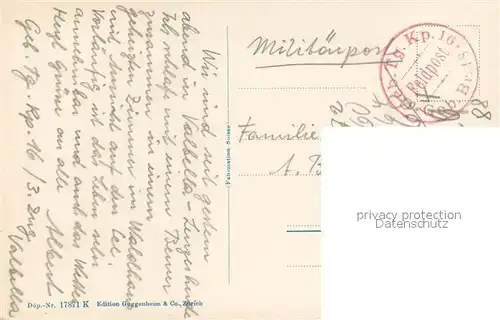 Wir sind seit gestern
abend in Valbella-Lenzerheide
Ich schlafe mit einem Bener
zusammen in einem
geheizten Zimmer im Waldhaus
mit Aussicht auf den See.
Vorläufig ist das Leben sehr
annehmbar und auch das Wetter
Herzl. Grüsse an alle
Albert
Geb. Tg. Kp. 16 / 3. Zug
Valbella
Fabrication Suisse
Dép.-Nr. 17871 K Edition Guggenheim & Co., Zürich
Militärpost
Tg. Kp. 16
Feldpost
Familie
A. B
88
privacy protection
Datenschutz